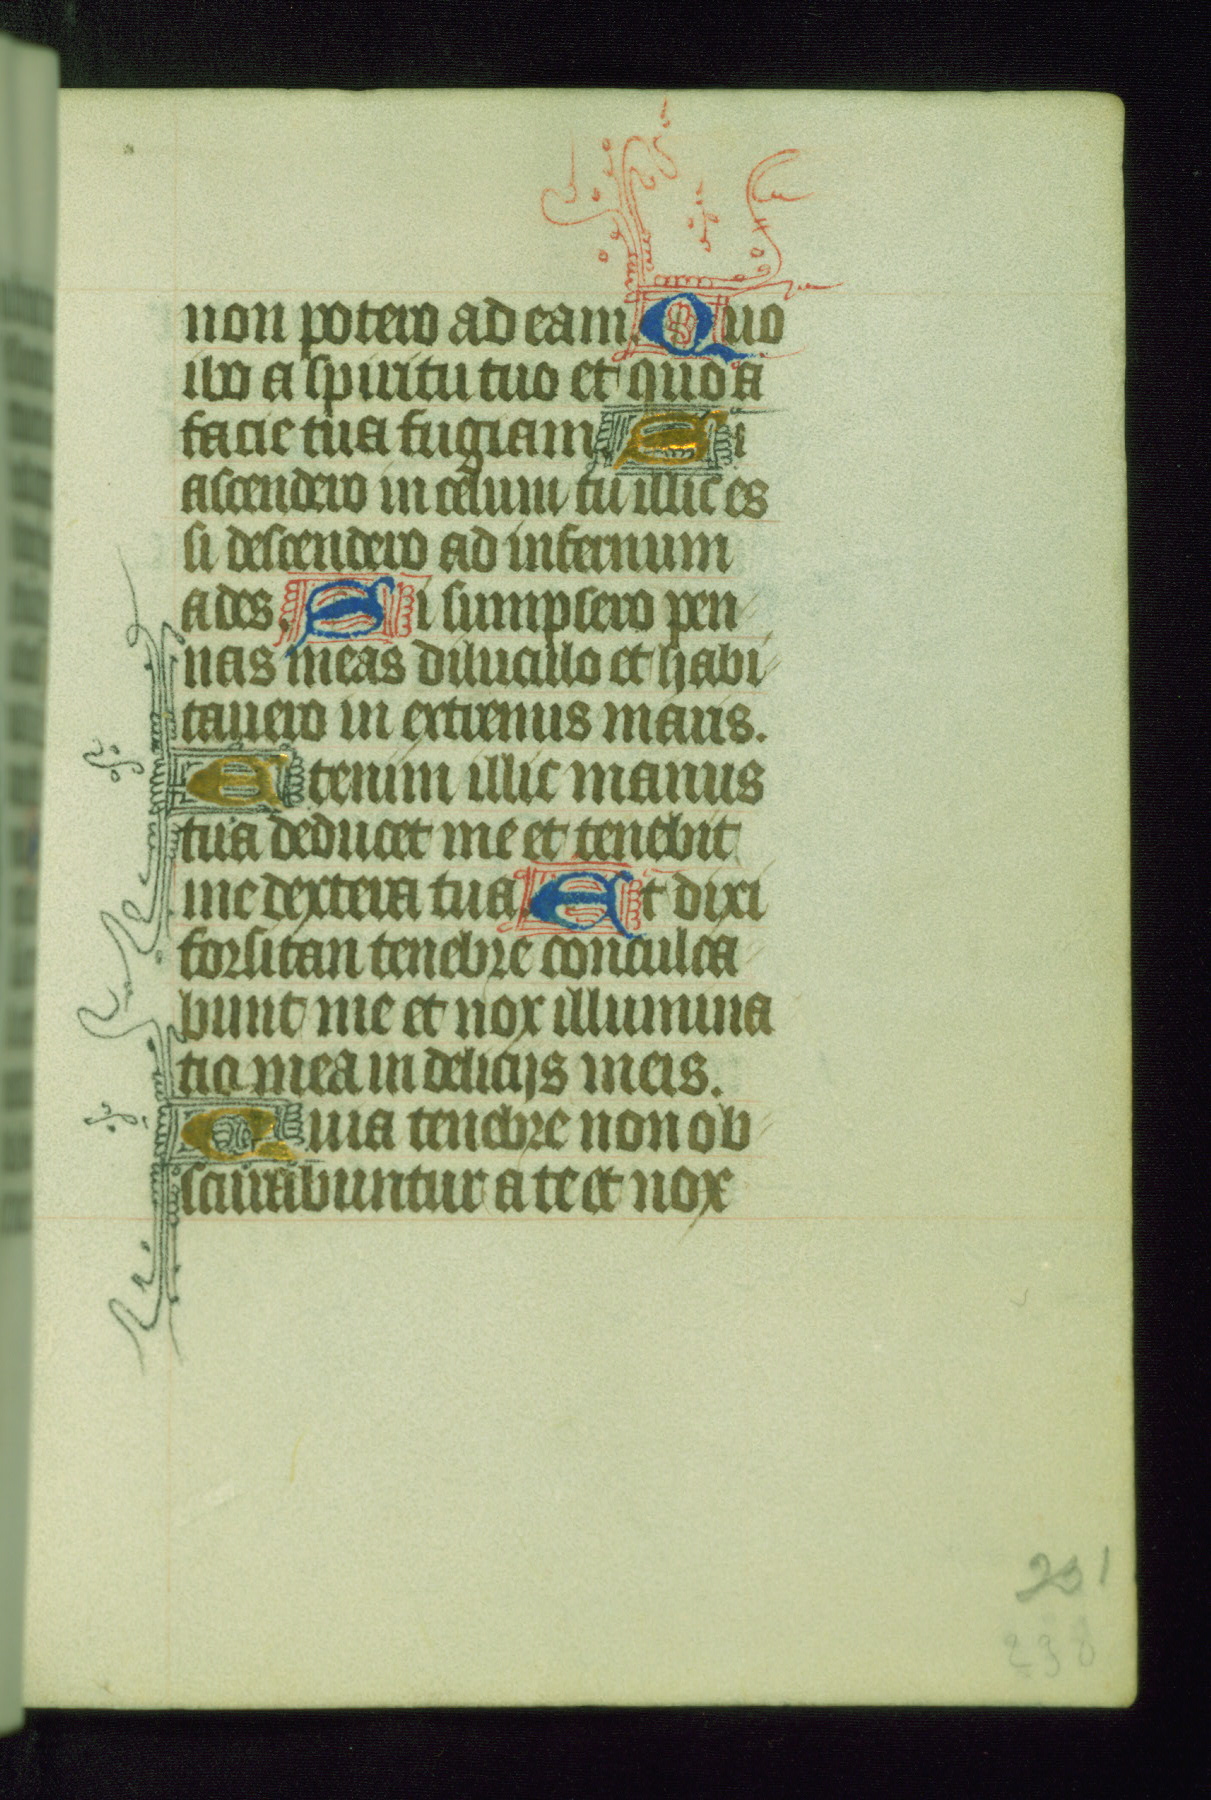 non potero ad eam. Quo
ibo a spiritu tuo et quo a
facie tua fugiam. Si
ascendero in celum tu illic es
si descendero ad infernum
ades. Si sumpsero pen
nas meas diluculo et habi
tauero in extremis maris.
Etenim illic manus
tua deducet me et tenebit
me dextera tua. Et dixi
forsitan tenebre conculca
bunt me et nox illumina
tio mea in delicijs meis.
Quia tenebre non ob
scurabuntur a te et nox
231
238